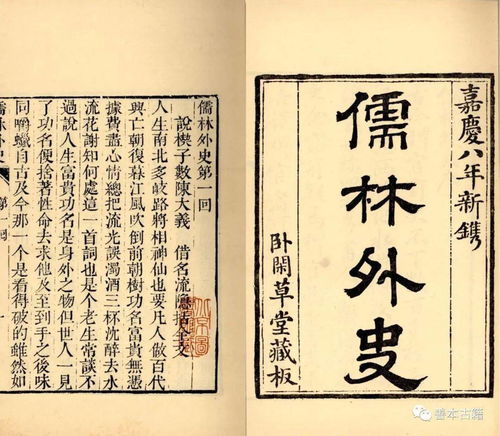 嘉慶八年新鐫
儒林外史
臥閑草堂藏板
儒林外史第一回
說楔子敷陳大義 借名流隱括全文
人生南北多岐路將相神仙也要凡人做百代
興亡朝復暮江風吹倒前朝樹功名富貴無憑
據費盡心情總把流光誤濁酒三杯沈醉去水
流花謝知何處這一首詞也是個老生常談不
過說人生富貴功名是身外之物但世人一見
了功名便捨著性命去求他及至到手之後味
同嚼蠟自古及今那一個是看得破的雖然如
儒林外史 第一回 一
善本古籍